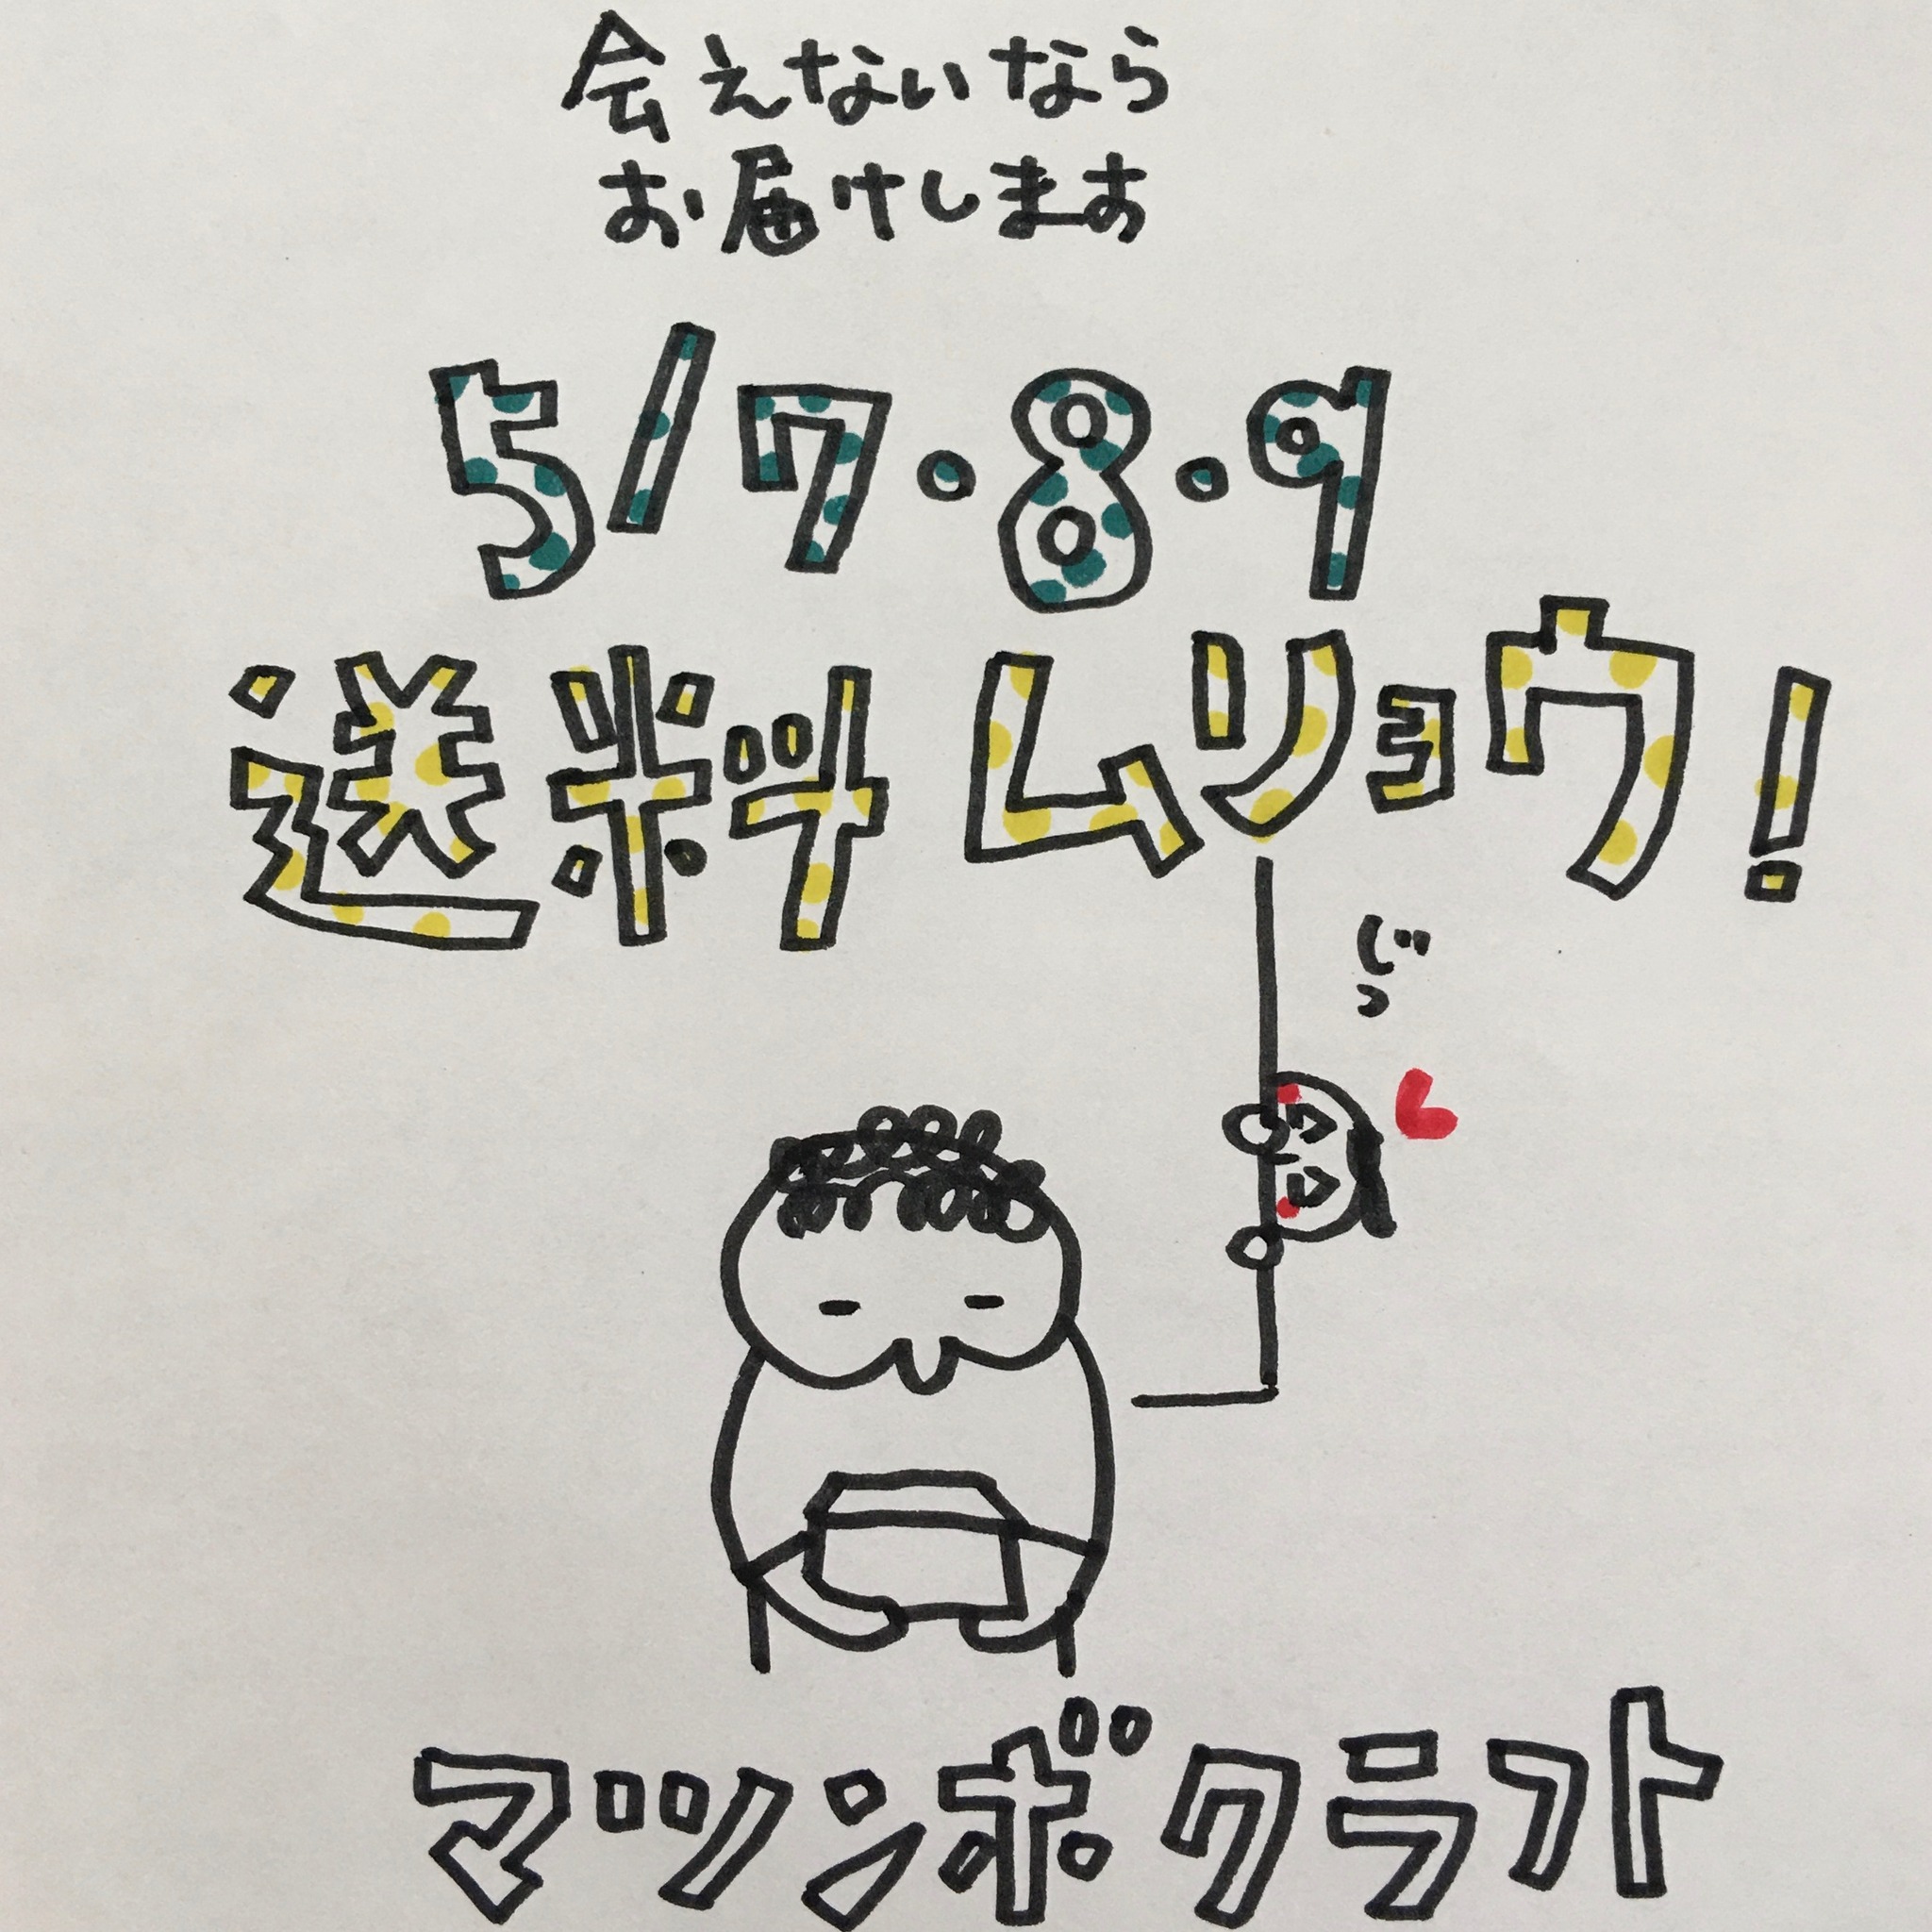 会えないなら
お届けします
5/7・8・9
送料ムリョウ!
じっ
マツンボクラフト